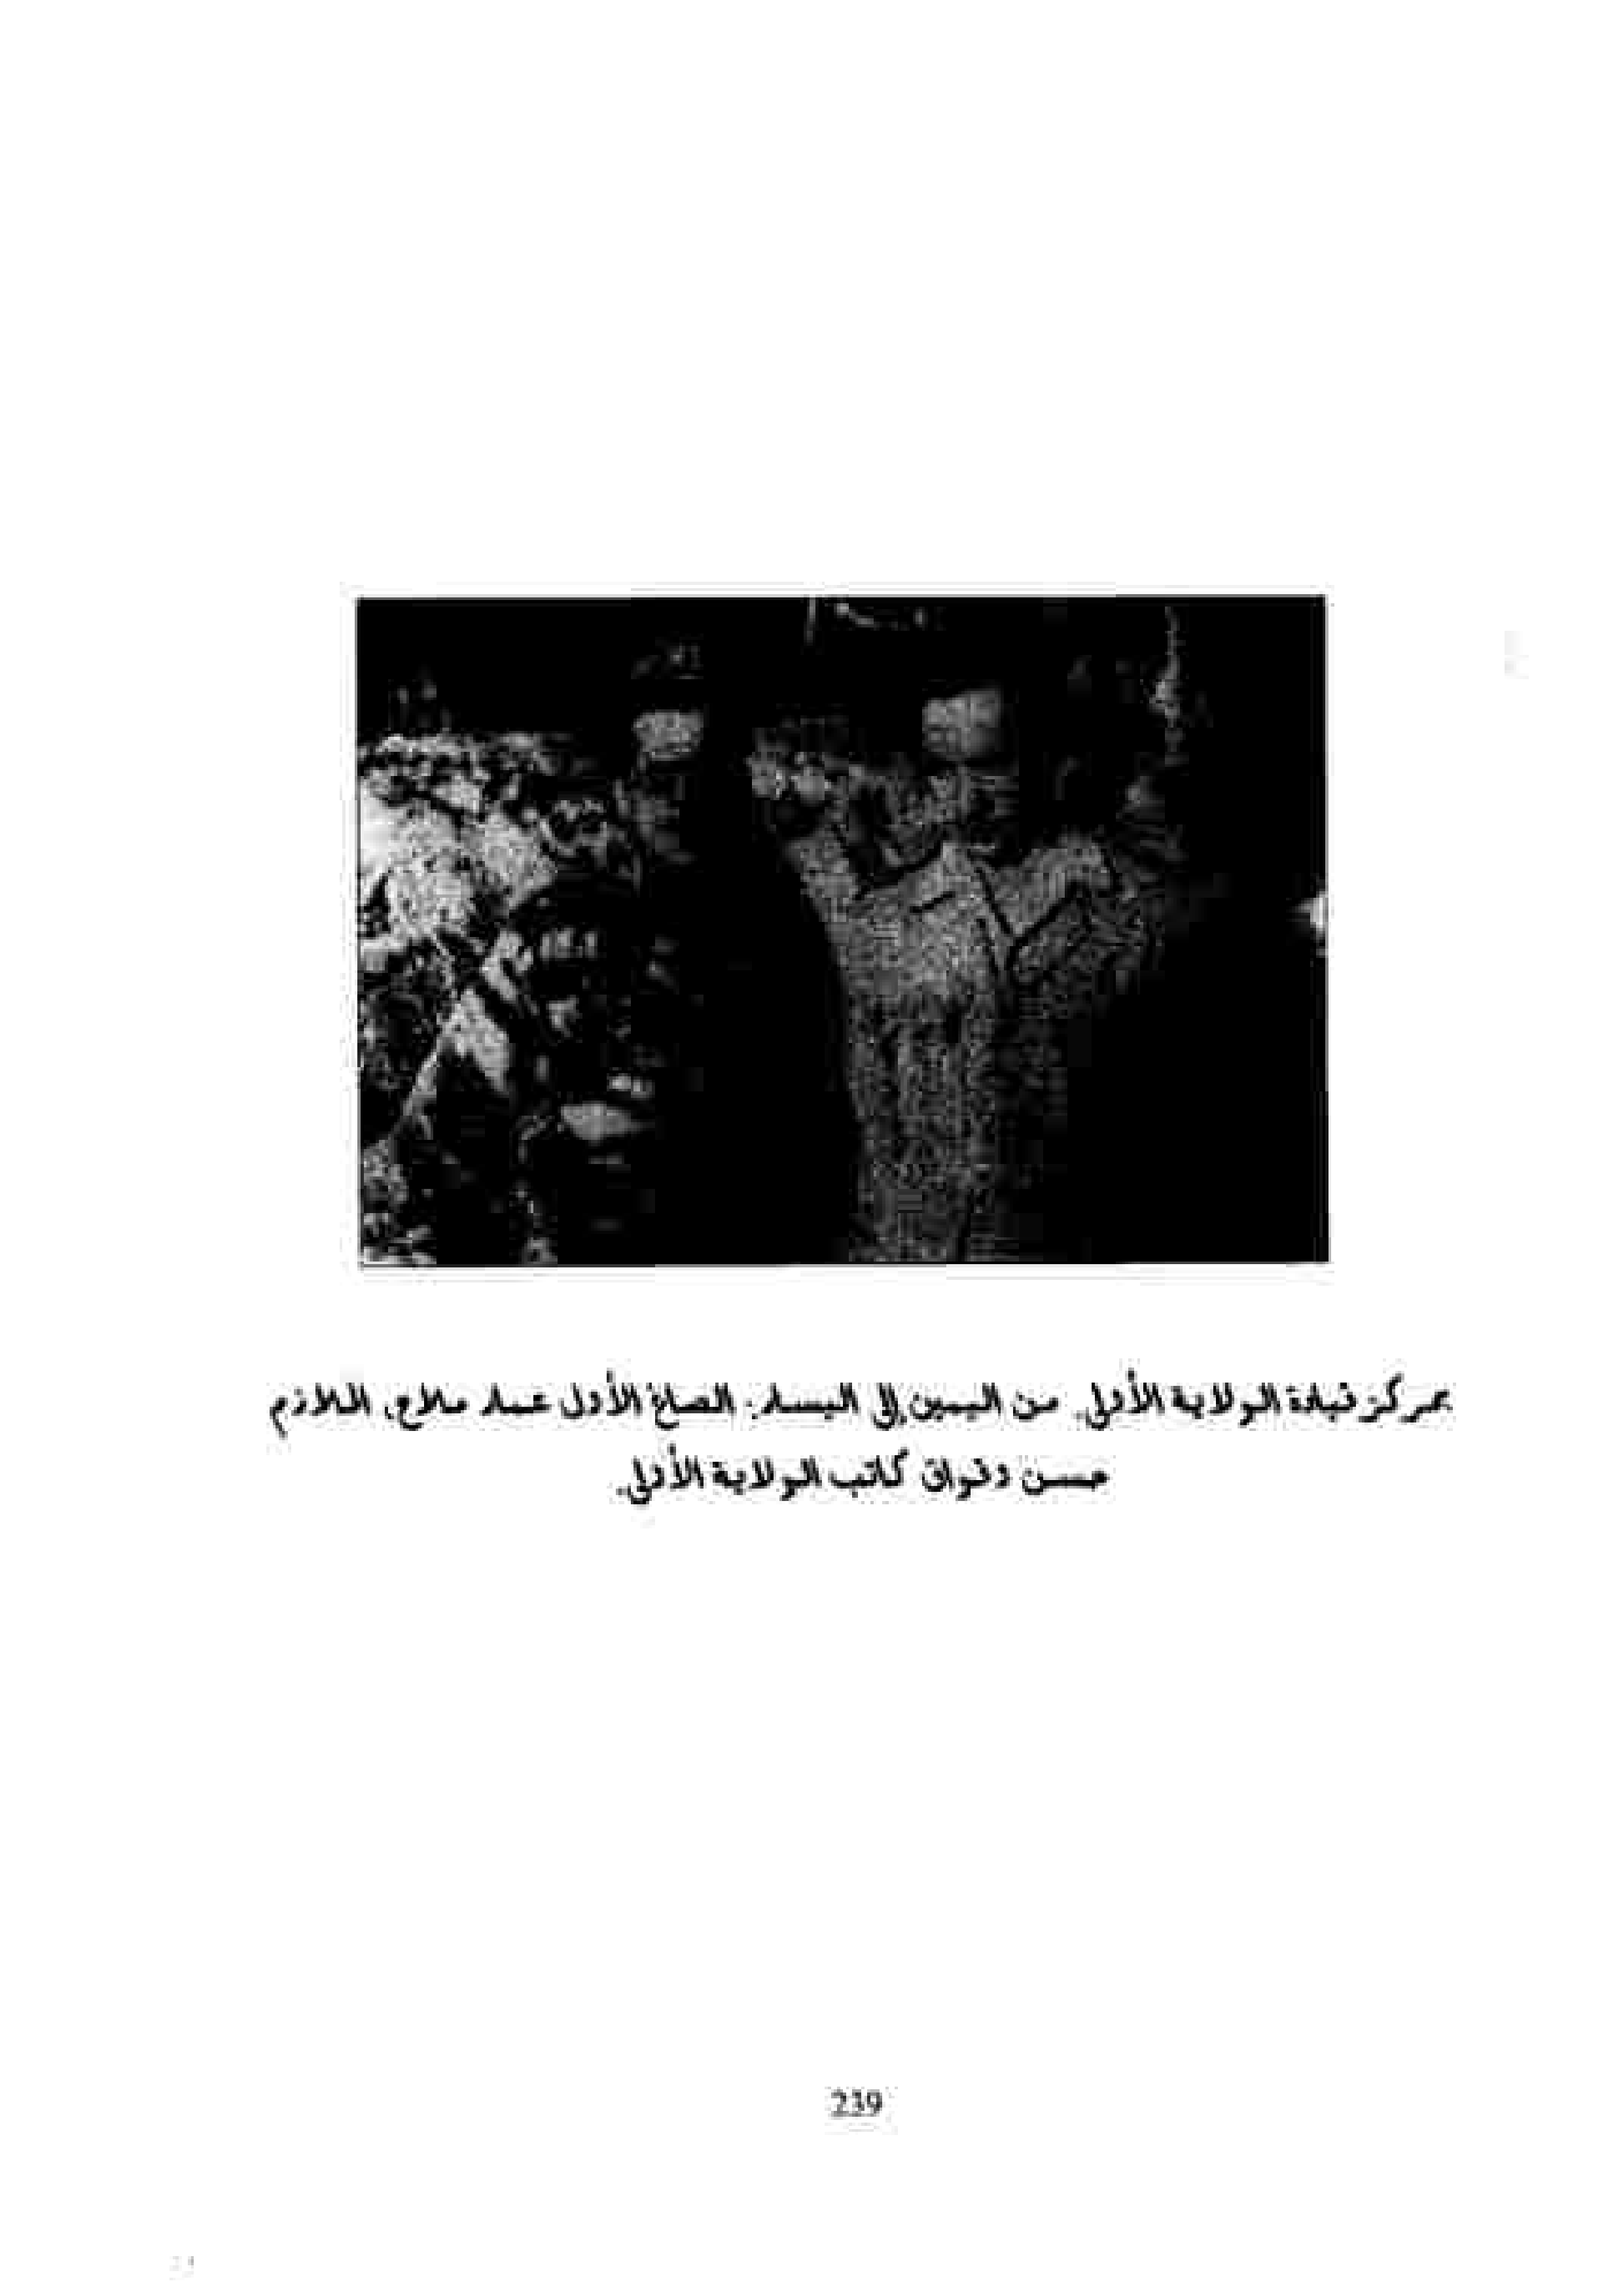 بمركز قيادة الولاية الأولى. من اليمين إلى اليسار: الصاغ الأول عمار ملاح، الملازم
حسن وقواق كاتب الولاية الأولى.
239